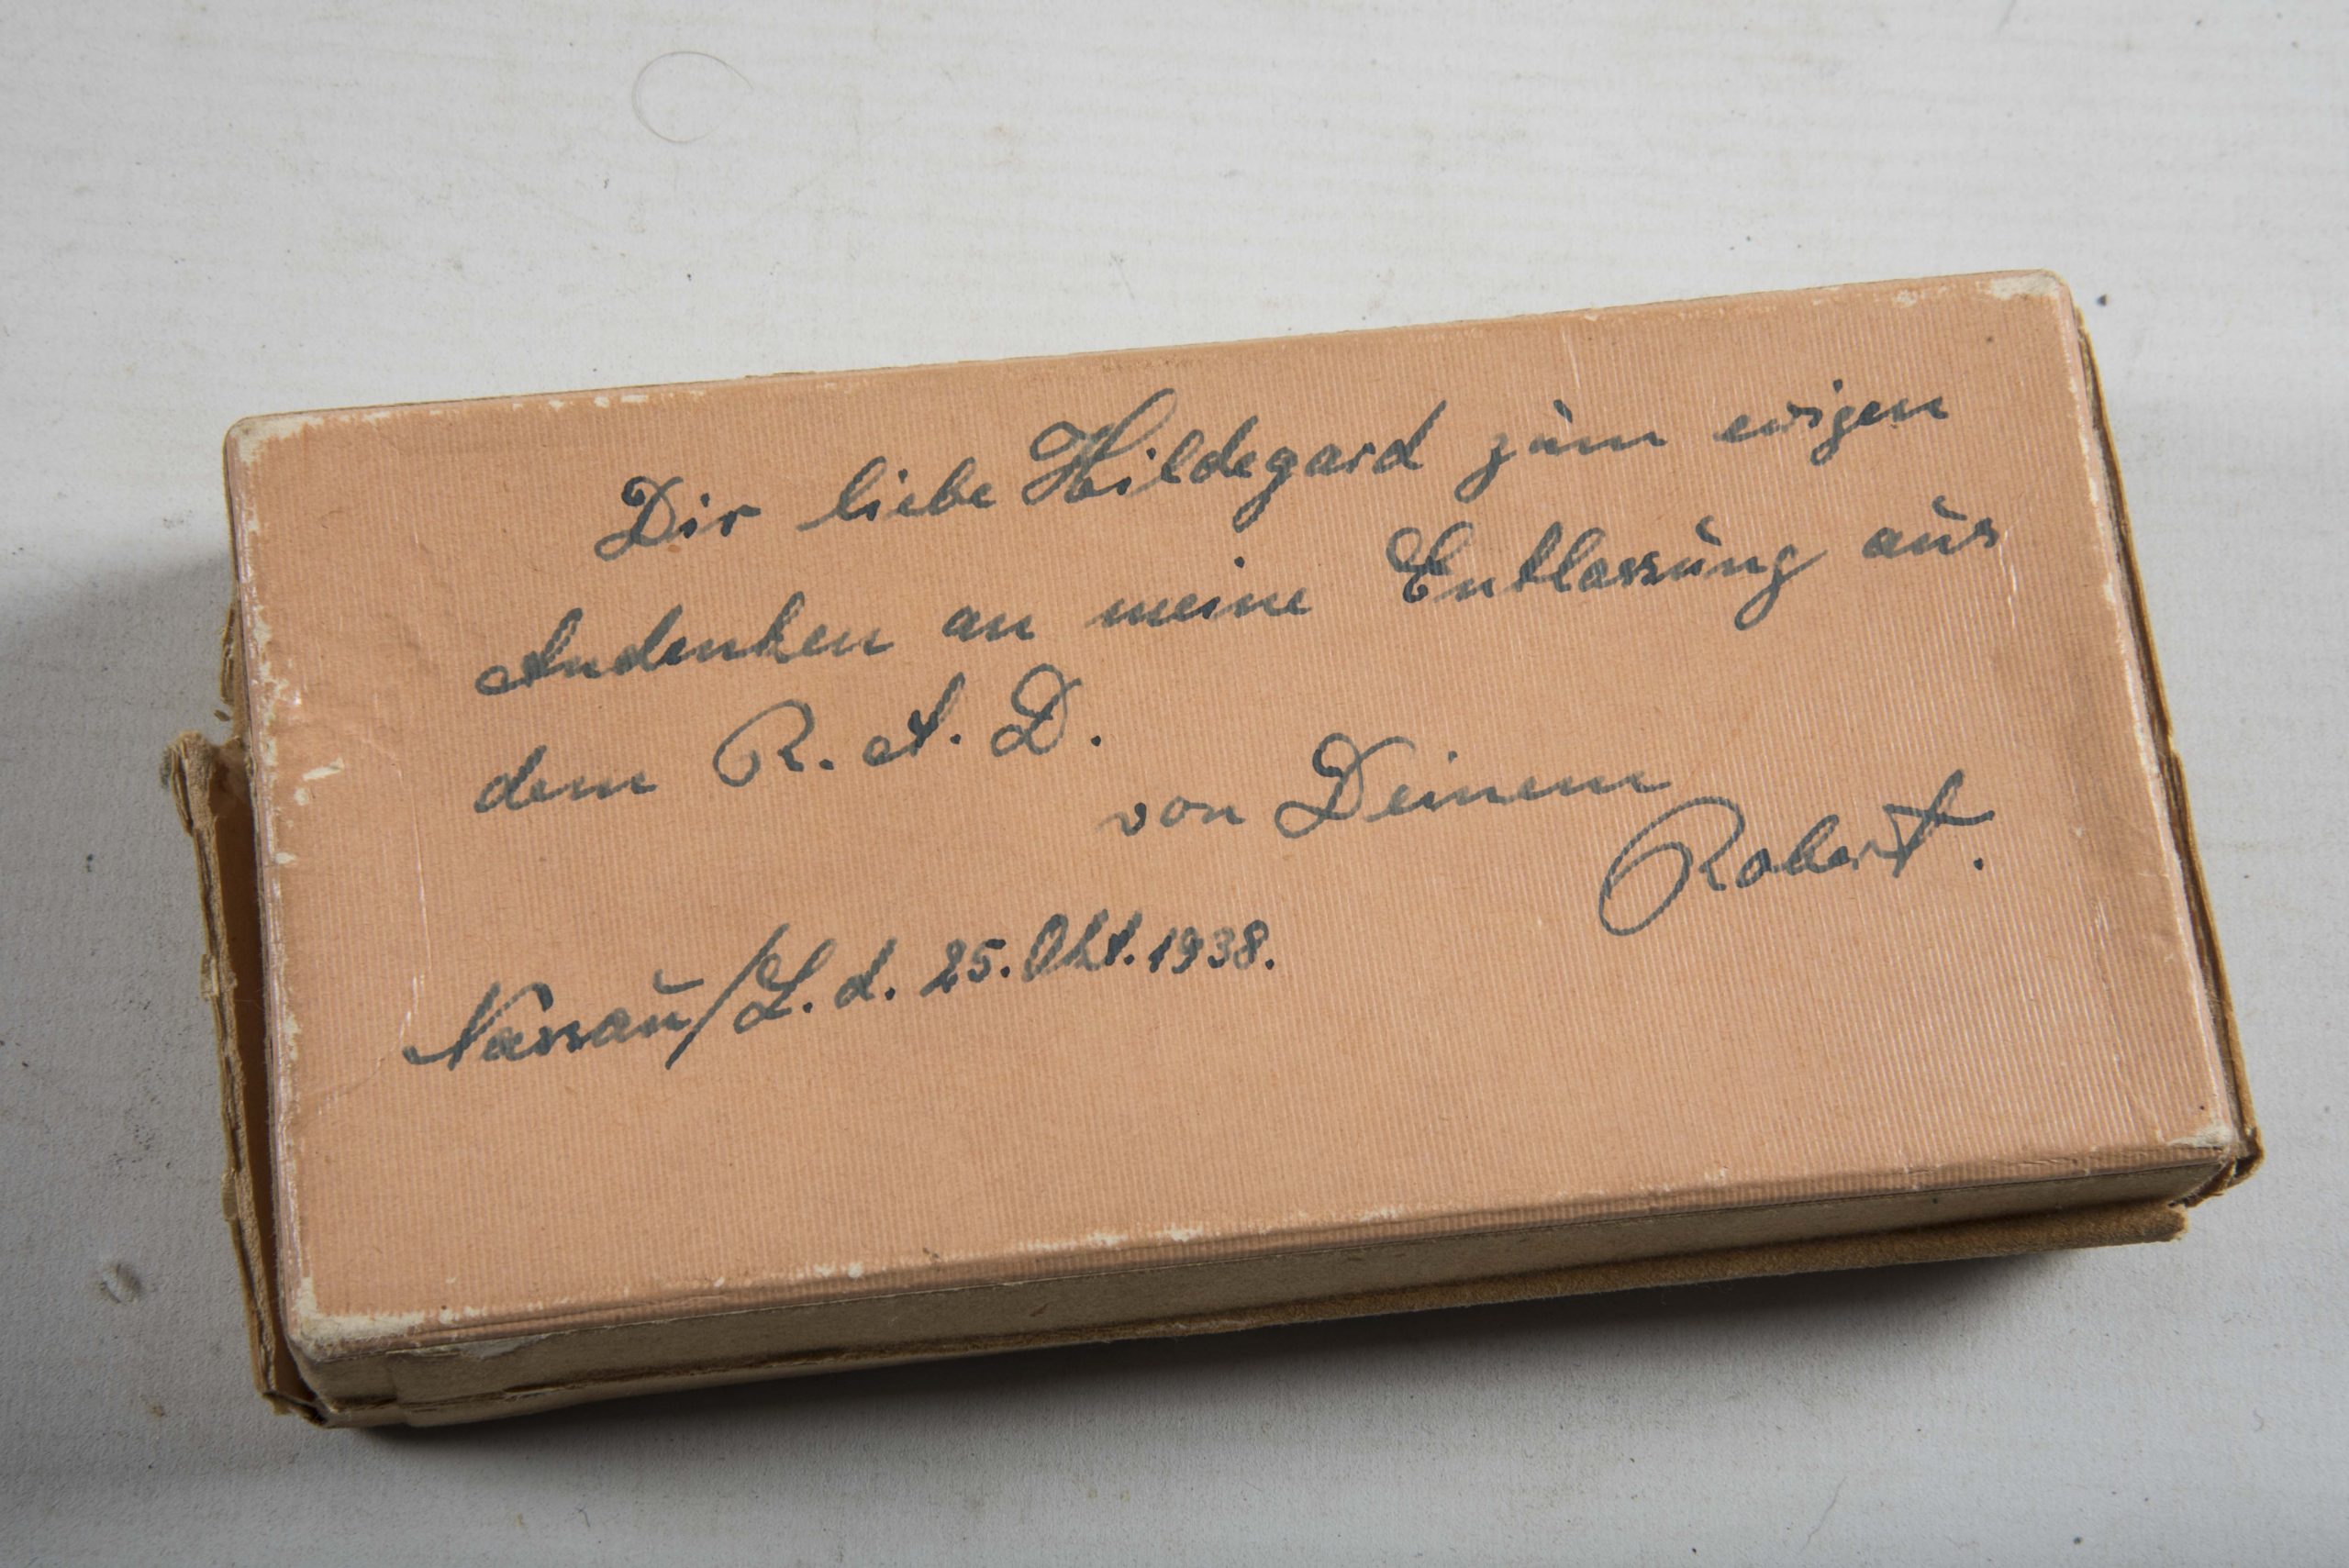 Dir liebe Hildegard zum ewigen
Andenken an meine Entlassung aus
dem R. A. D.
von Deinem
Robert.
Nassau/L. d. 25. Okt. 1938.